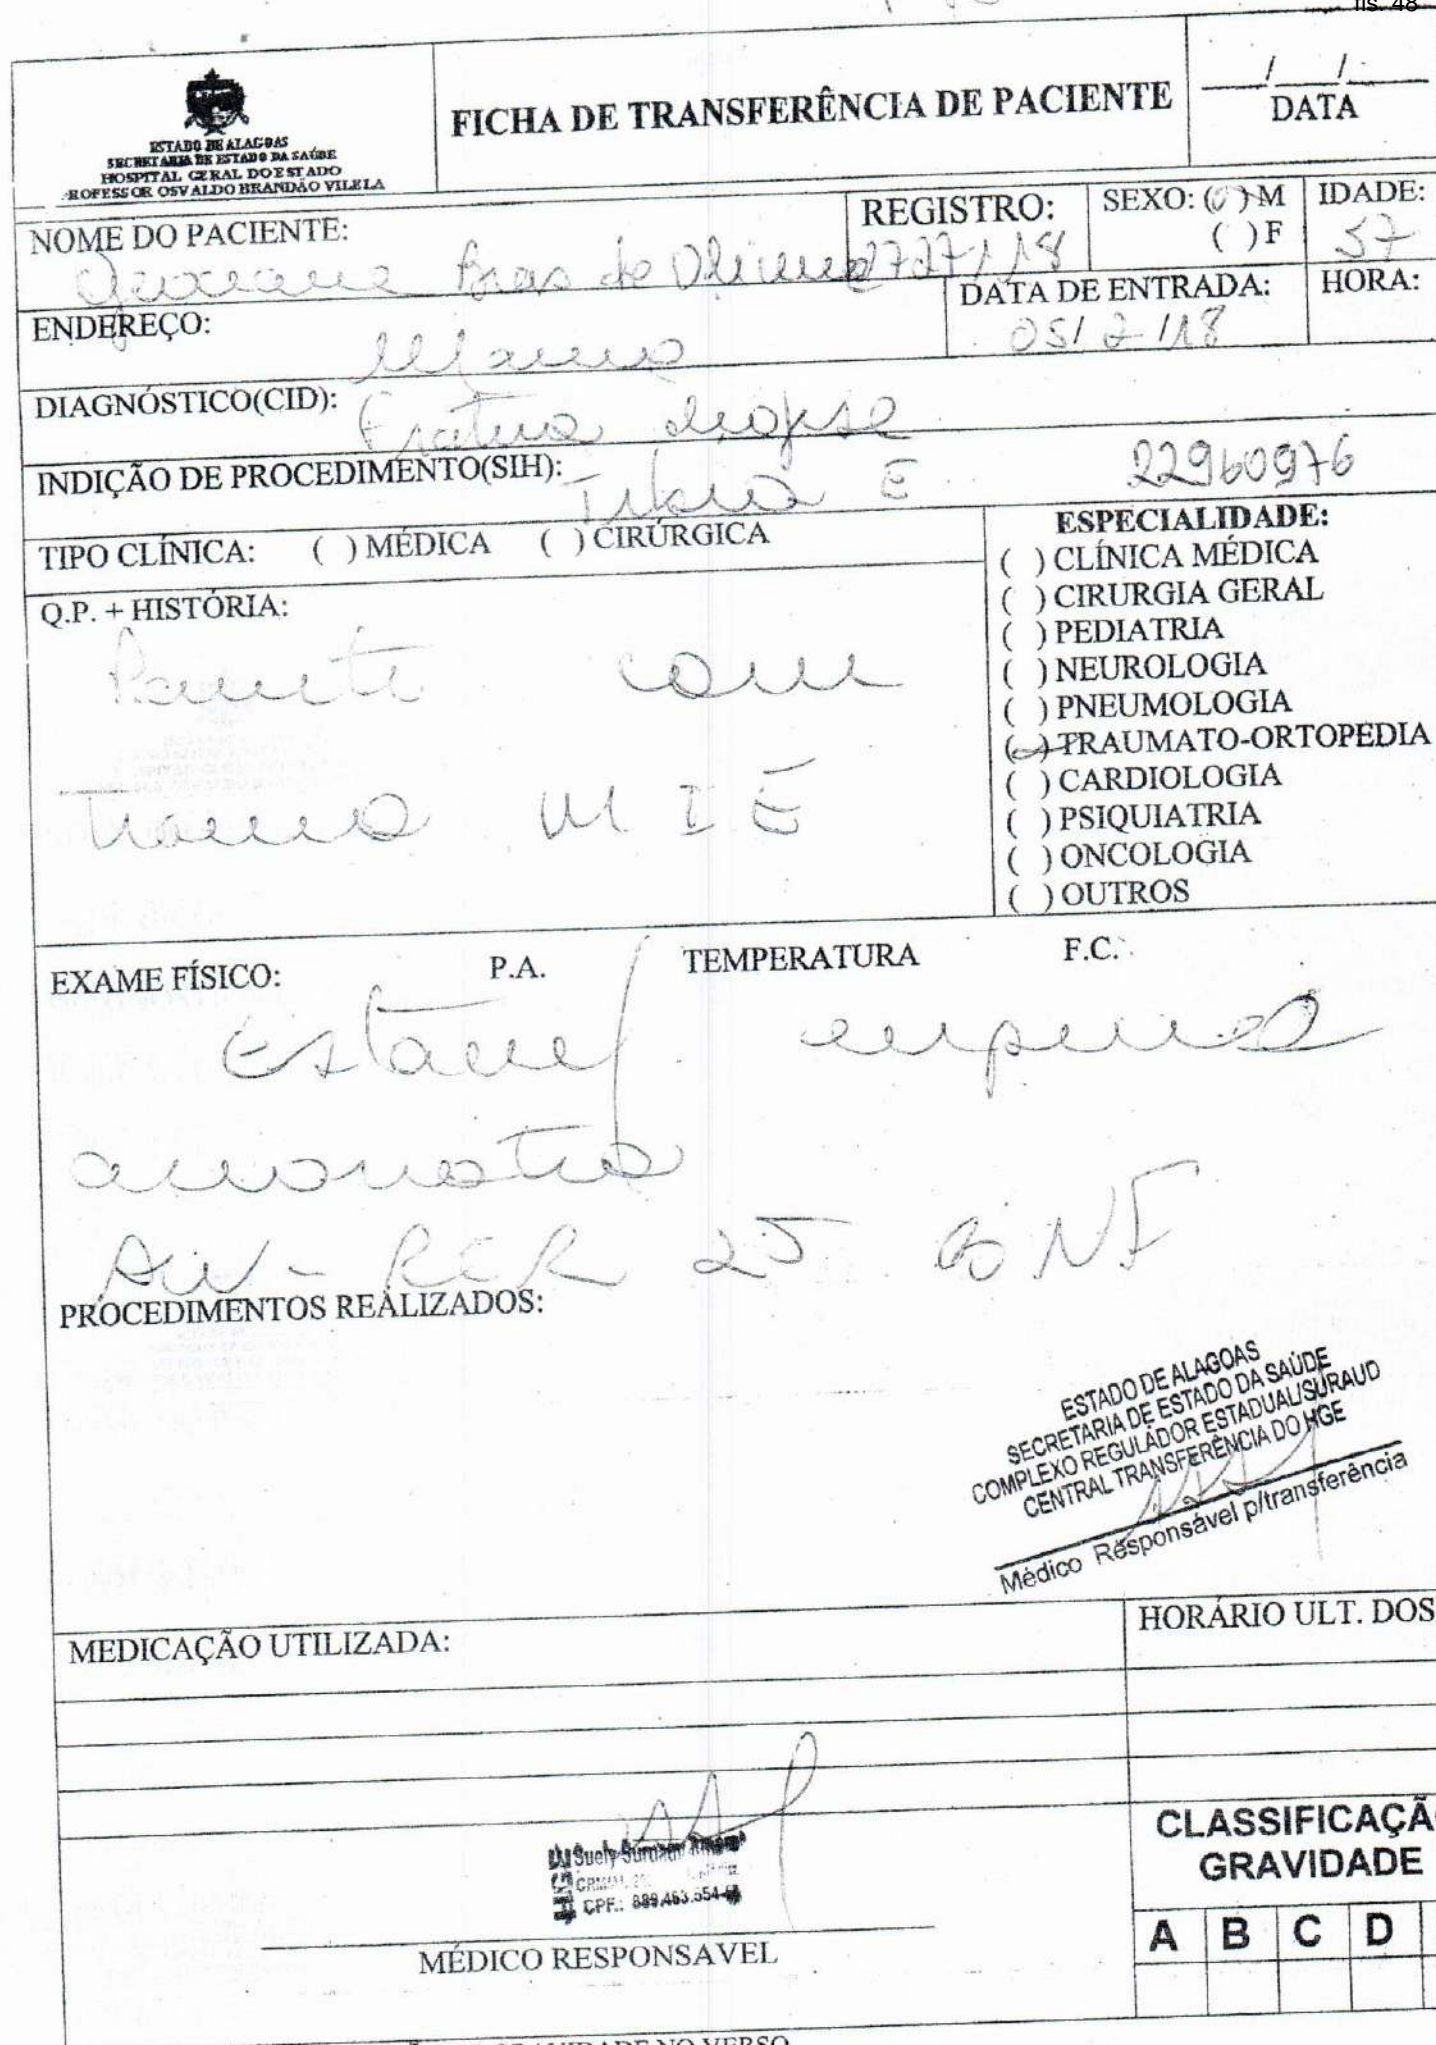 fls. 48
ESTADO DE ALAGOAS
SECRETARIA DE ESTADO DA SAÚDE
HOSPITAL GERAL DO ESTADO
ROFESSOR OSVALDO BRANDÃO VILELA
FICHA DE TRANSFERÊNCIA DE PACIENTE
__/__/__
DATA
NOME DO PACIENTE:
Bras de Oliveira
REGISTRO:
2727118
SEXO: ( ) M
( ) F
IDADE:
57
ENDEREÇO:
DATA DE ENTRADA:
05/2/18
HORA:
DIAGNÓSTICO(CID):
Fratura diafise
INDIÇÃO DE PROCEDIMENTO(SIH):
Tibia E
22960976
TIPO CLÍNICA: ( ) MÉDICA ( ) CIRÚRGICA
ESPECIALIDADE:
( ) CLÍNICA MÉDICA
( ) CIRURGIA GERAL
( ) PEDIATRIA
( ) NEUROLOGIA
( ) PNEUMOLOGIA
( ) TRAUMATO-ORTOPEDIA
( ) CARDIOLOGIA
( ) PSIQUIATRIA
( ) ONCOLOGIA
( ) OUTROS
Q.P. + HISTÓRIA:
Paciente com
Trauma M I E
EXAME FÍSICO: P.A. TEMPERATURA F.C.
Estavel eupneica
RCR 2T BNF
PROCEDIMENTOS REALIZADOS:
ESTADO DE ALAGOAS
SECRETARIA DE ESTADO DA SAÚDE
COMPLEXO REGULADOR ESTADUAL/SURAUD
CENTRAL TRANSFERÊNCIA DO HGE
Médico Responsável p/transferência
MEDICAÇÃO UTILIZADA:
HORÁRIO ULT. DOS
Suely
CPF.: 889.463.554
MÉDICO RESPONSAVEL
CLASSIFICAÇÃ
GRAVIDADE
A B C D
GRAVIDADE NO VERSO